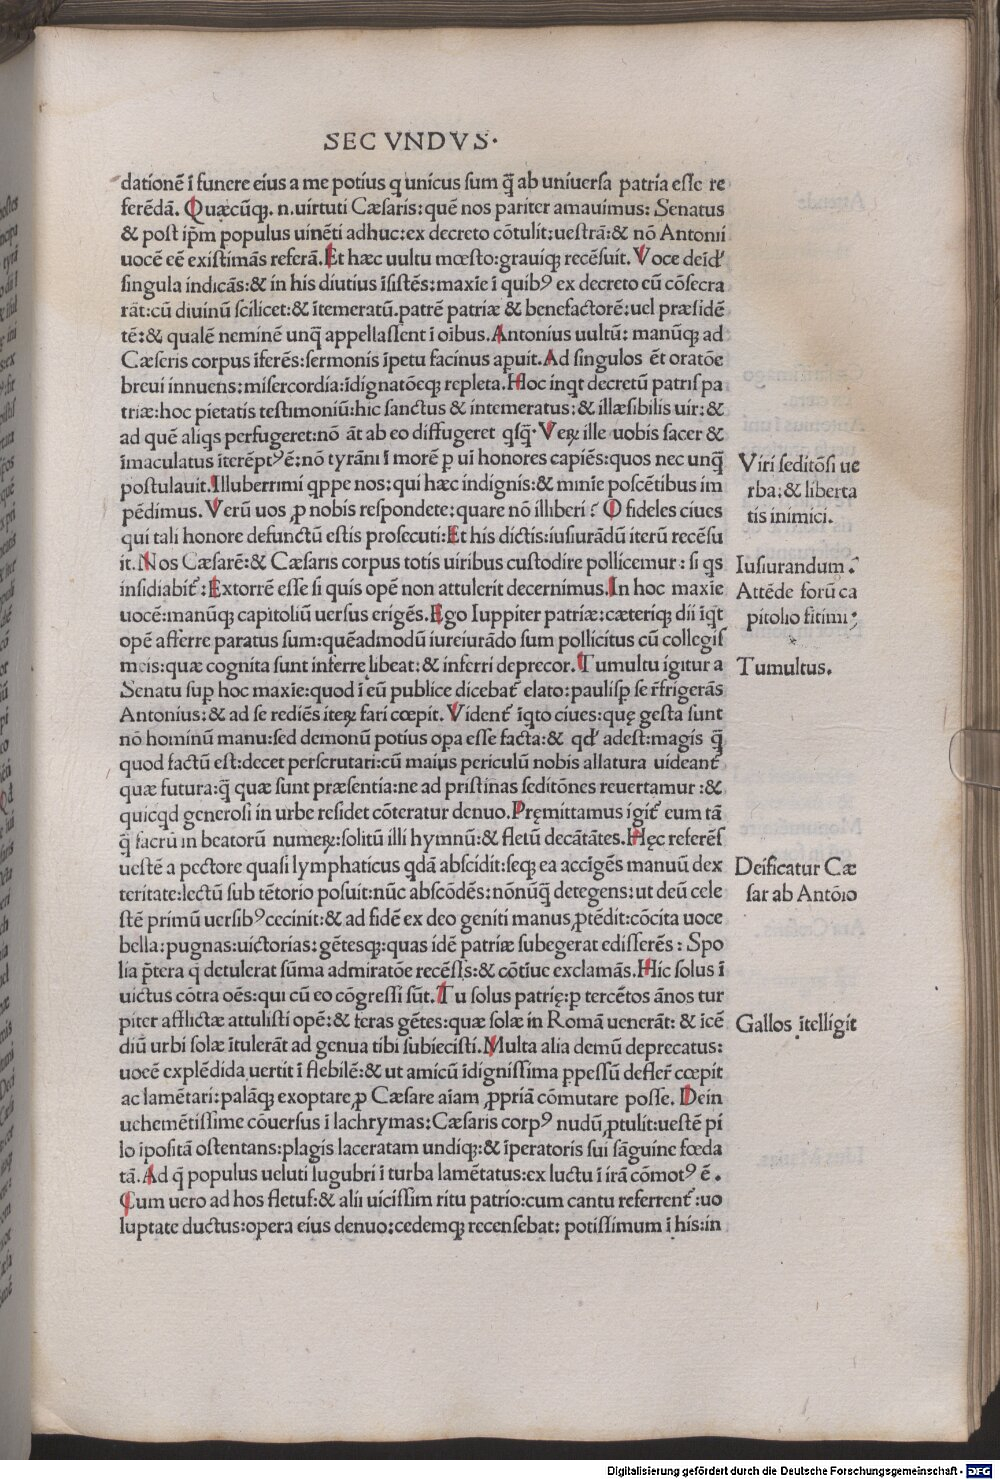 SECVNDVS.
dationē ī funere eius a me potius q̄ unicus sum q̄ ab uniuersa patria esse re
ferēdā. Quæcūq;. n. uirtuti Cæsaris: quē nos pariter amauimus: Senatus
& post ip̄m populus uinēti adhuc: ex decreto cōtulit: uestrā: & nō Antonii
uocē eē existimās referā. Et hæc uultu mœsto: grauiq; recēsuit. Voce deīd'
singula indicās: & in his diutius īsistēs: maxīe ī quib⁹ ex decreto eū cōsecra
rāt: cū diuinū scilicet: & ītemeratū. patrē patriæ & benefactorē: uel præsidē
tē: & qualē neminē unq̄ appellassent ī oībus. Antonius uultū: manūq; ad
Cæseris corpus īferēs: sermonis īpetu facinus apuit. Ad singulos ēt oratōe
breui innuens: misercordia: īdignatōeq; repleta. Hoc inqt decretū patris pa
triæ: hoc pietatis testimoniū: hic sanctus & intemeratus: & illæsibilis uir: &
ad quē aliqs perfugeret: nō āt ab eo diffugeret qsq̄. Veꝝ ille uobis sacer &
īmaculatus īterēpt⁹ ē: nō tyrāni ī morē p ui honores capiēs: quos nec unq̄
postulauit. Illuberrimi qppe nos: qui hæc indignis: & minīe poscētibus im
pēdimus. Verū uos ꝓ nobis respondete: quare nō illiberi? O fideles ciues
qui tali honore defunctū estis prosecuti: Et his dictis: iusiurādū iterū recēsu
it. Nos Cæsarē: & Cæsaris corpus totis uiribus custodire pollicemur: si qs
insidiabit̄: Extorrē esse si quis opē non attulerit decernimus. In hoc maxīe
uocē: manūq; capitoliū uersus erigēs. Ego Iuppiter patriæ: cæteriq; dii īqt
opē afferre paratus sum: quēadmodū iureiurādo sum pollicitus cū collegis
meis: quæ cognita sunt inferre libeat: & inferri deprecor. Tumultu igitur a
Senatu sup hoc maxīe: quod ī eū publice dicebat̄ elato: paulisp se r̄frigerās
Antonius: & ad se rediēs iteꝝ fari cœpit. Vident̄ īqto ciues: quę gesta sunt
nō hominū manu: sed demonū potius opa esse facta: & qd' adest: magis q̄
quod factū est: decet perscrutari: cū maius periculū nobis allatura uideant̄
quæ futura: q̄ quæ sunt præsentia: ne ad pristinas seditōnes reuertamur: &
quicqd generosi in urbe residet cōteratur denuo. Pręmittamus igit̄ eum tā
q̄ sacrū in beatorū numeꝝ: solitū illi hymnū: & fletū decātātes. Hęc referēs
uestē a pectore quasi lymphaticus qdā abscidit: seq; ea accīgēs manuū dex
teritate: lectū sub tētorio posuit: nūc abscōdēs: nōnūq̄ detegens: ut deū cele
stē primū uersib⁹ cecinit: & ad fidē ex deo geniti manus ꝓtēdit: cōcita uoce
bella: pugnas: uictorias: gētesq;: quas idē patriæ subegerat edisserēs: Spo
lia p̄tera q̄ detulerat sūma admiratōe recēsēs: & cōtīue exclamās. Hic solus ī
uictus cōtra oēs: qui cū eo cōgressi sūt. Tu solus patrię: p tercētos ānos tur
piter afflictæ attulisti opē: & feras gētes: quæ solæ in Romā uenerāt: & īcē
diū urbi solæ ītulerāt ad genua tibi subiecisti. Multa alia demū deprecatus:
uocē explēdida uertit ī flebilē: & ut amicū īdignissima ppessū defler̄ cœpit
ac lamētari: palāq; exoptare ꝓ Cæsare aīam ꝓpriā cōmutare posse. Dein
uehemētissime cōuersus ī lachrymas: Cæsaris corp⁹ nudū ꝓtulit: uestē pi
lo īpositā ostentans: plagis laceratam undiq;: & īperatoris sui sāguine fœda
tā. Ad q̄ populus ueluti lugubri ī turba lamētatus: ex luctu ī irā cōmot⁹ ē.
Cum uero ad hos fletus: & alii uicissim ritu patrio: cum cantu referrent̄: uo
luptate ductus: opera eius denuo: cedemq; recensebat: potissimum ī his: in
Viri seditōsi ue
rba: & liberta
tis inimici.
Iusiurandum.
Attēde forū ca
pitolio fitimi
Tumultus.
Deificatur Cæ
sar ab Antōio
Gallos ītelligit
Digitalisierung gefördert durch die Deutsche Forschungsgemeinschaft - DFG